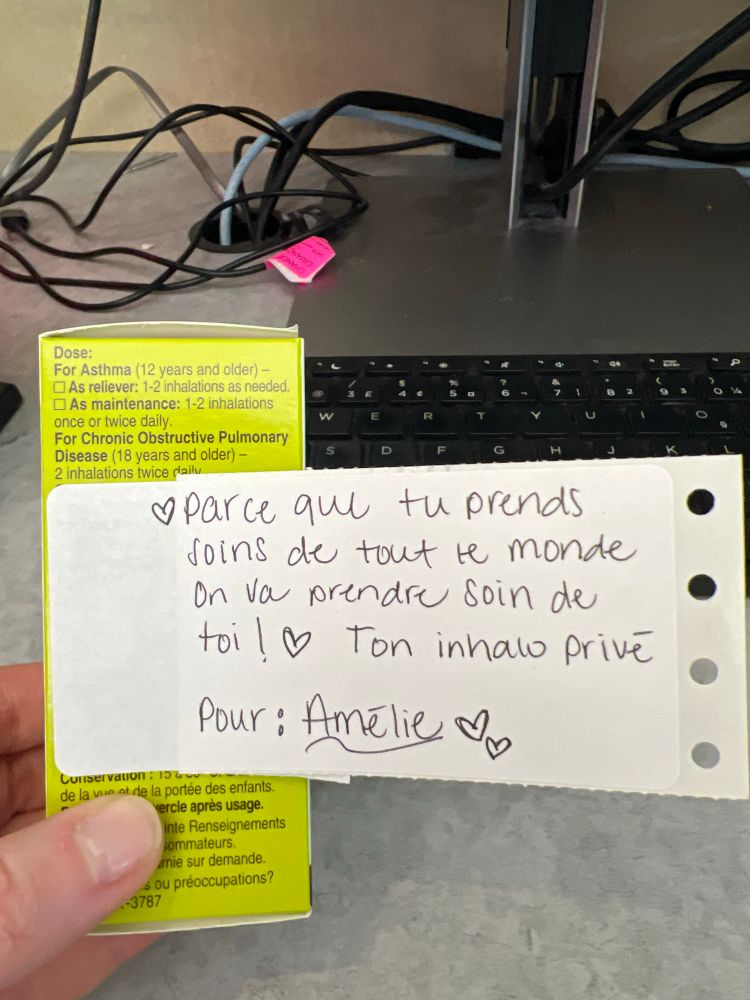 Dose:
For Asthma (12 years and older) –
☐ As reliever: 1-2 inhalations as needed.
☐ As maintenance: 1-2 inhalations
once or twice daily.
For Chronic Obstructive Pulmonary
Disease (18 years and older) –
2 inhalations twice daily
♡ Parce que tu prends
soins de tout le monde
on va prendre soin de
toi ! ♡ Ton inhalo privé
Pour : Amélie ♡♡
Conservation : 15 à
de la vue et de la portée des enfants.
vercle après usage.
Renseignements
sommateurs.
rnie sur demande.
s ou préoccupations?
-3787
W E R T Y U I O
S D F G H J K L